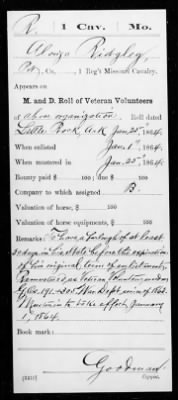 R. 1 Cav. Mo.
Alonzo Ridgley,
Pvt., Co. , 1 Reg't Missouri Cavalry.
Appears on
M. and D. Roll of Veteran Volunteers
of above organization. Roll dated
Little Rock, Ark Jan. 25", 1864.
When enlisted Jan. 1", 1864.
When mustered in Jan. 25", 1864.
Bounty paid $ 100; due $ 100
Company to which assigned B.
Valuation of horse, $ 100
Valuation of horse equipments, $ 100
Remarks: To have a furlough of at least
30 days in his State before the expiration
of his original term of enlistment.
Remustered as Veteran Volunteer under
G.O. 191 & 305 War Dept series of 1863.
Muster in to take effect January
1, 1864.
Book mark:
Goodman
Copyist.